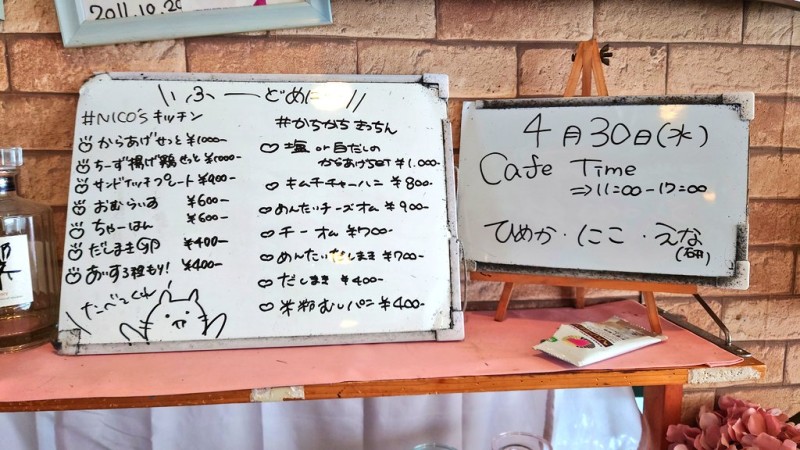 2011.10.29
\\ いふーどめにゅー //
#NICO'sキッチン
からあげせっと ¥1000-
ちーず揚げ鶏せっと ¥1000-
サンドイッチプレート ¥900-
おむらいす ¥600-
ちゃーはん ¥600-
だしまき卵 ¥400-
あいす3種もり! ¥400-
たーべてくれ
#かちかちきっちん
塩 or 白だしの
からあげSET ¥1.000-
キムチチャーハン ¥800-
めんたいチーズオム ¥900-
チーオム ¥700-
めんたいだしまき ¥700-
だしまき ¥400-
米粉むしパン ¥400-
4月30日(水)
Cafe Time
⇒11:00-17:00
ひめか・にこ・えな